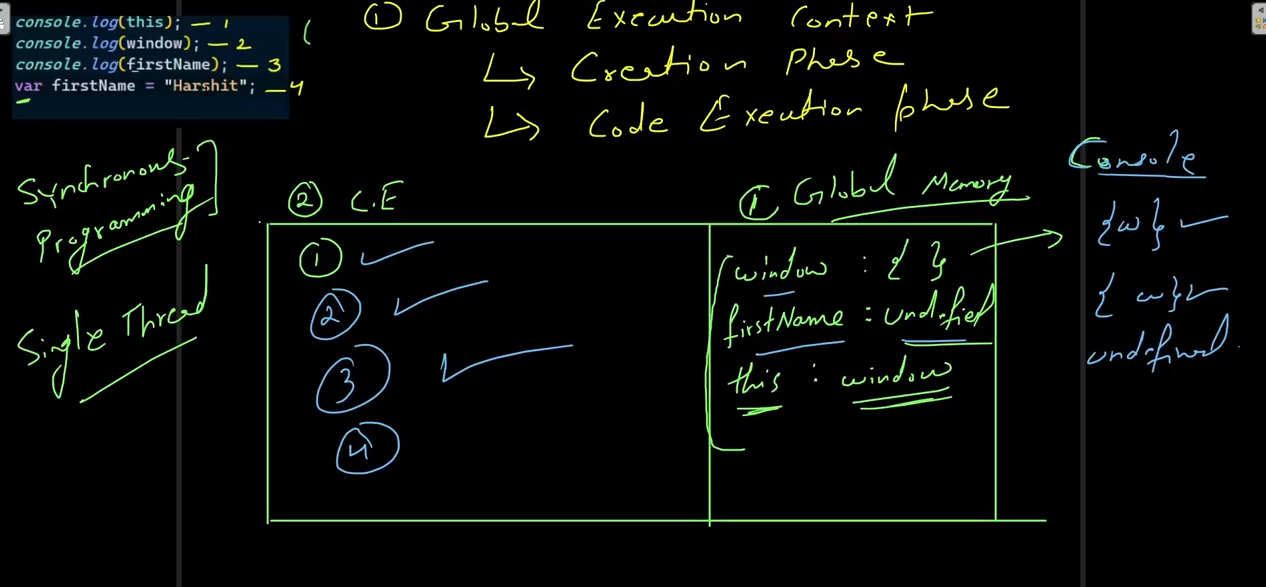 console.log(this); — 1
console.log(window); — 2
console.log(firstName); — 3
var firstName = "Harshit"; — 4
① Global Execution Context
↳ Creation Phase
↳ Code Execution phase
Synchronous
Programming
Single Thread
② C.E
①
②
③
④
① Global Memory
window : { }
firstName : undefied
this : window
Console
{w}
{w}
undefined